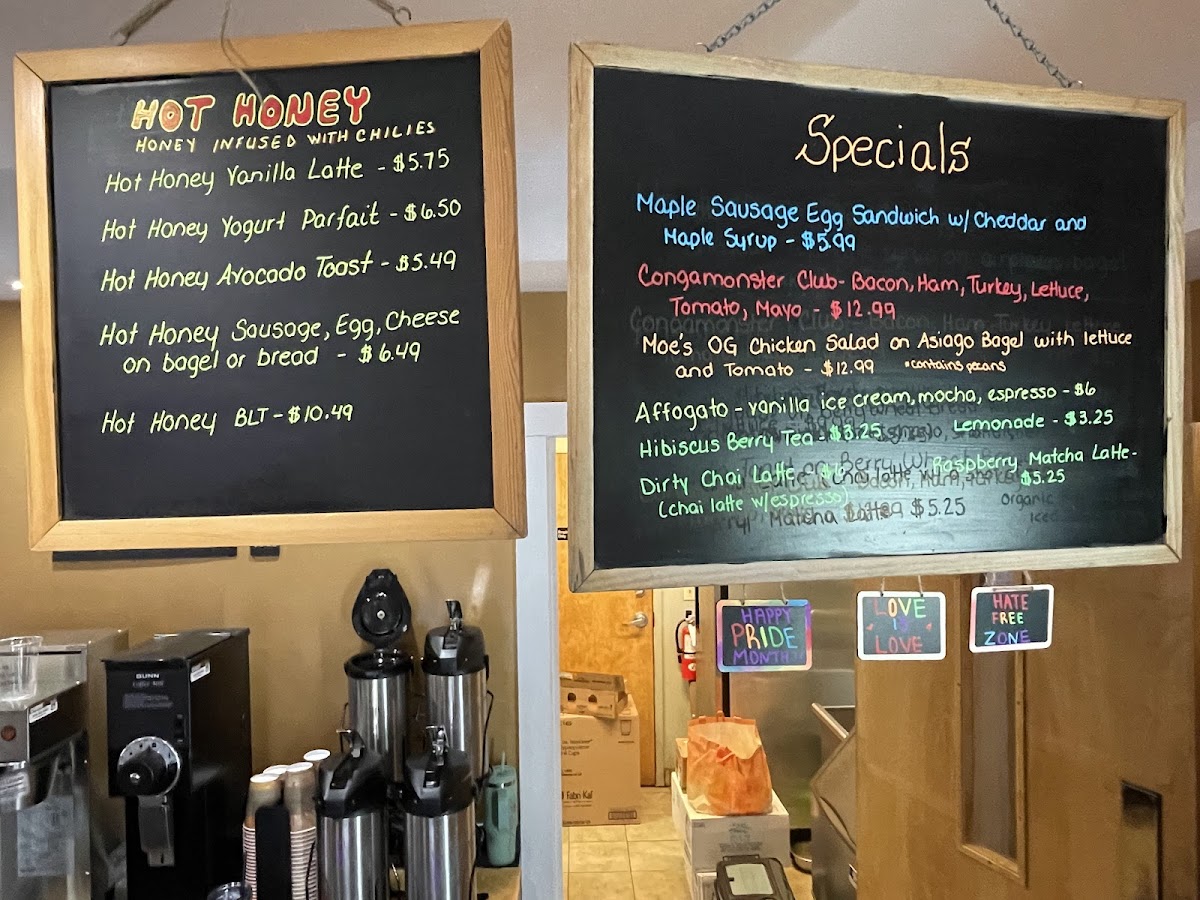 HOT HONEY
HONEY INFUSED WITH CHILIES
Hot Honey Vanilla Latte - $5.75
Hot Honey Yogurt Parfait - $6.50
Hot Honey Avocado Toast - $5.49
Hot Honey Sausage, Egg, Cheese
on bagel or bread - $6.49
Hot Honey BLT - $10.49
Specials
Maple Sausage Egg Sandwich w/ Cheddar and
Maple Syrup - $5.99
Congamonster Club - Bacon, Ham, Turkey, Lettuce,
Tomato, Mayo - $12.99
Moe's OG Chicken Salad on Asiago Bagel with lettuce
and Tomato - $12.99 *contains pecans
Affogato - vanilla ice cream, mocha, espresso - $6
Hibiscus Berry Tea - $3.25 Lemonade - $3.25
Dirty Chai Latte Raspberry Matcha Latte -
(chai latte w/espresso) $5.25
Matcha Latte $5.25
Organic
Iced
HAPPY
PRIDE
MONTH!
LOVE
IS
LOVE
HATE
FREE
ZONE
BUNN
Fabri-Kal